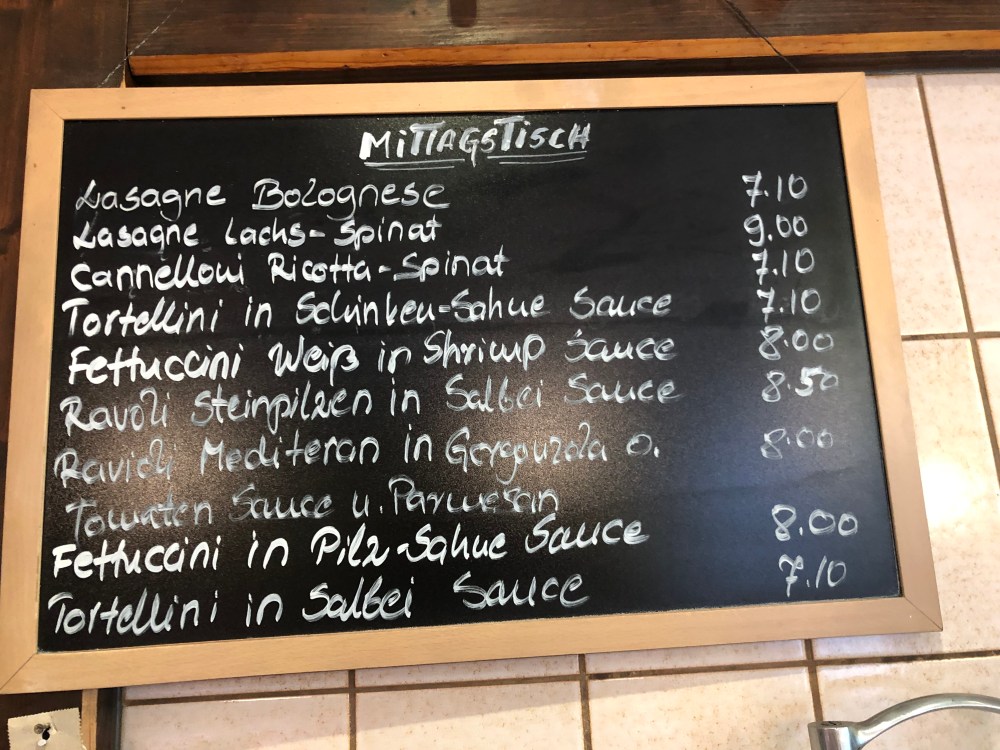 MiTTAGSTiSCH
Lasagne Bolognese 7.10
Lasagne Lachs-Spinat 9.00
Cannelloni Ricotta-Spinat 7.10
Tortellini in Schinken-Sahne Sauce 7.10
Fettuccini Weiß in Shrimp Sauce 8.00
Ravoli Steinpilzen in Salbei Sauce 8.50
Ravioli Mediteran in Gorgonzola o. 8.00
Tomaten Sauce u. Parmesan
Fettuccini in Pilz-Sahne Sauce 8.00
Tortellini in Salbei Sauce 7.10